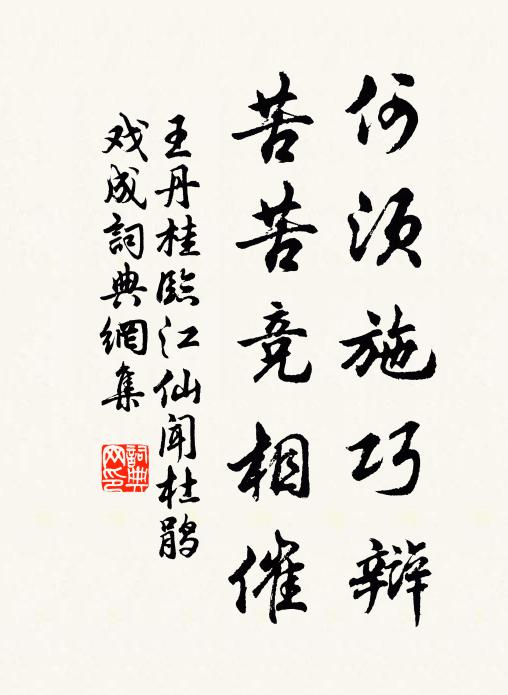 何须施巧辩
苦苦竞相催
王丹桂临江仙闻杜鹃
戏成词典網集
詞典网印